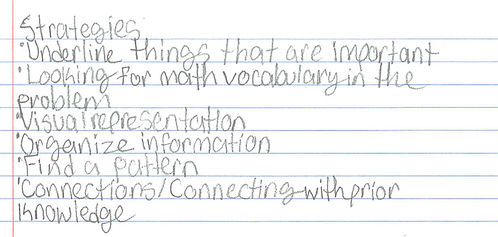 Strategies
•Underline things that are important
•Looking for math vocabulary in the
problem
•Visual representation
•Organize information
•Find a pattern
•Connections/Connecting with prior
knowledge